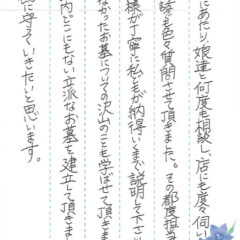 にあたり、娘達と何度も相談し、店にも度々伺い
も色々質問させて頂きました。その都度担当
様が丁寧に私どもが納得いくまで説明して下さい
なかったお墓についての沢山のことも学ばせて頂きま
内どこにもない立派なお墓を建立して頂きま
に守っていきたいと思います。